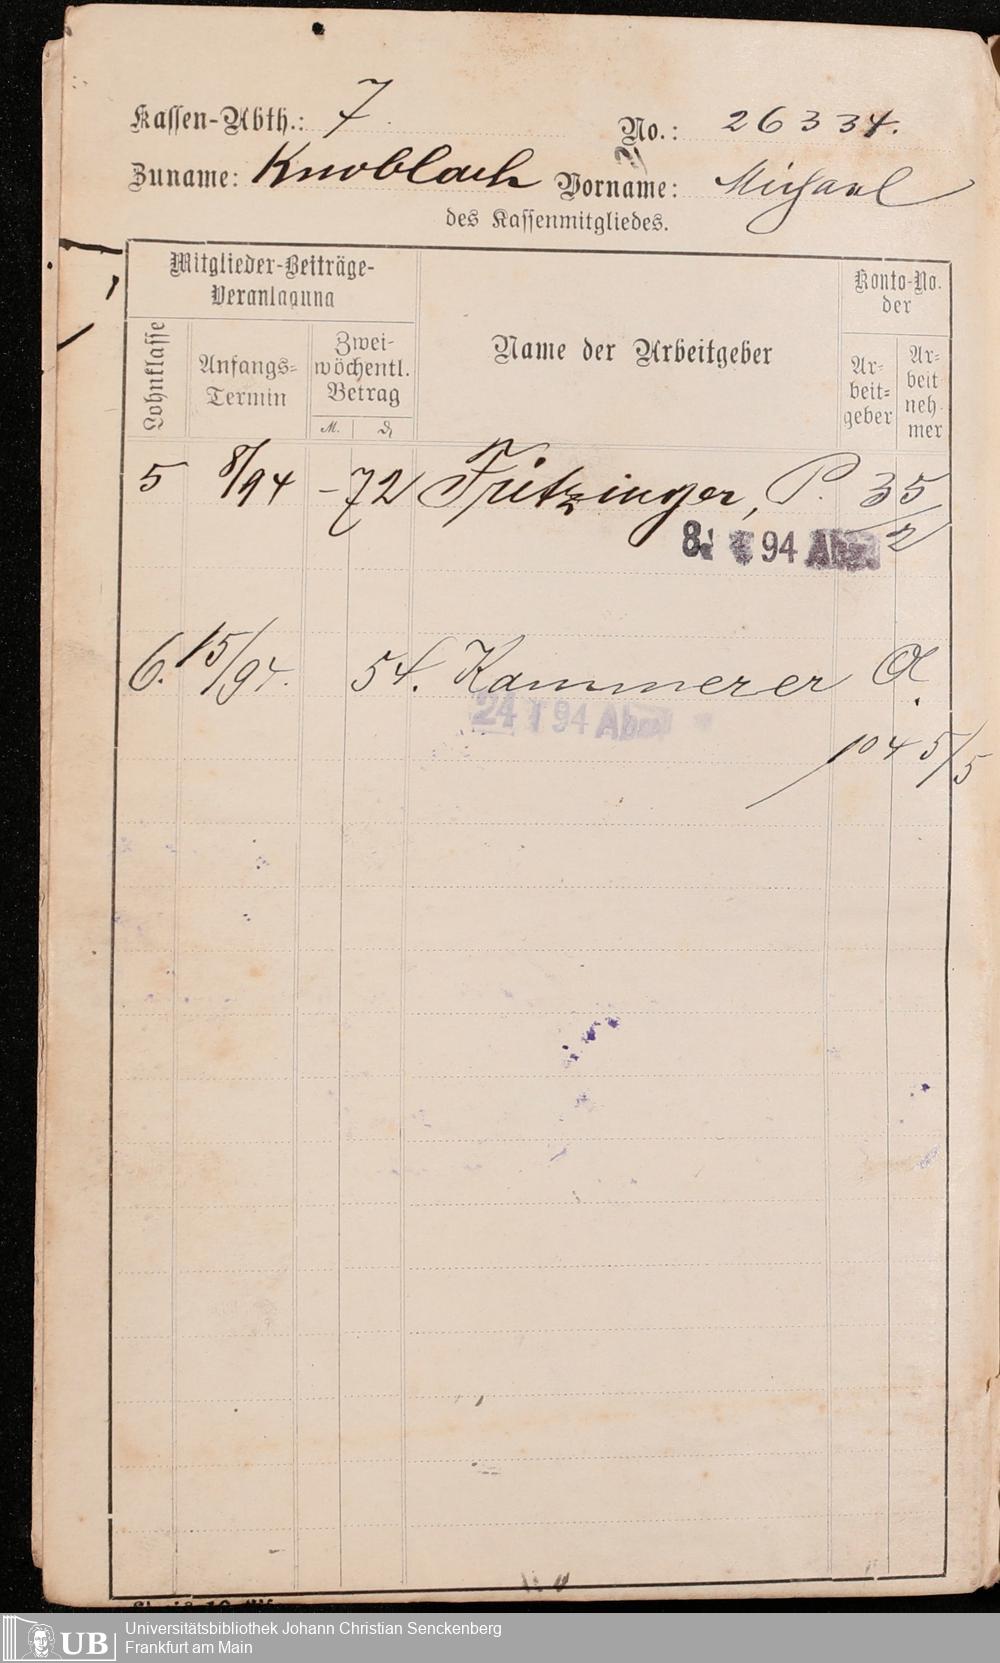 Kassen-Abth.: 7. No.: 26334.
Zuname: Knoblach Vorname: Michael
des Kassenmitgliedes.
Mitglieder-Beiträge-
Veranlagung
Lohnklasse
Anfangs-
Termin
Zwei-
wöchentl.
Betrag
M.
Name der Arbeitgeber
Konto-No.
der
Ar-
beit-
geber
Ar-
beit
neh-
mer
5 8/94 - 72 Fritzinger, P. 35/2
8. 94 Abg.
6. 15/94. 54. Kammerer A.
24 1 94
1045/5
Universitätsbibliothek Johann Christian Senckenberg
Frankfurt am Main
UB